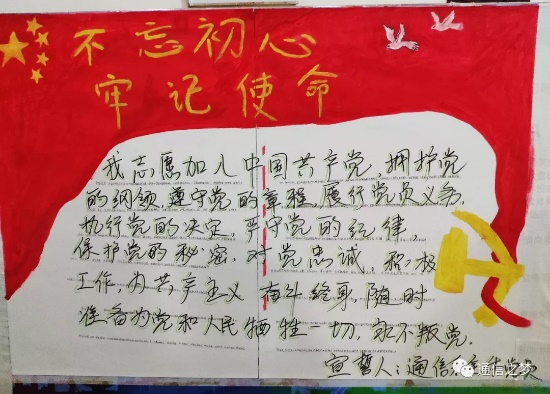 不忘初心
牢记使命
我志愿加入中国共产党,拥护党
的纲领,遵守党的章程,履行党员义务,
执行党的决定,严守党的纪律,
保护党的秘密,对党忠诚,积极
工作,为共产主义 奋斗终身,随时
准备为党和人民牺牲一切,永不叛党.
宣誓人:通信
通信之梦